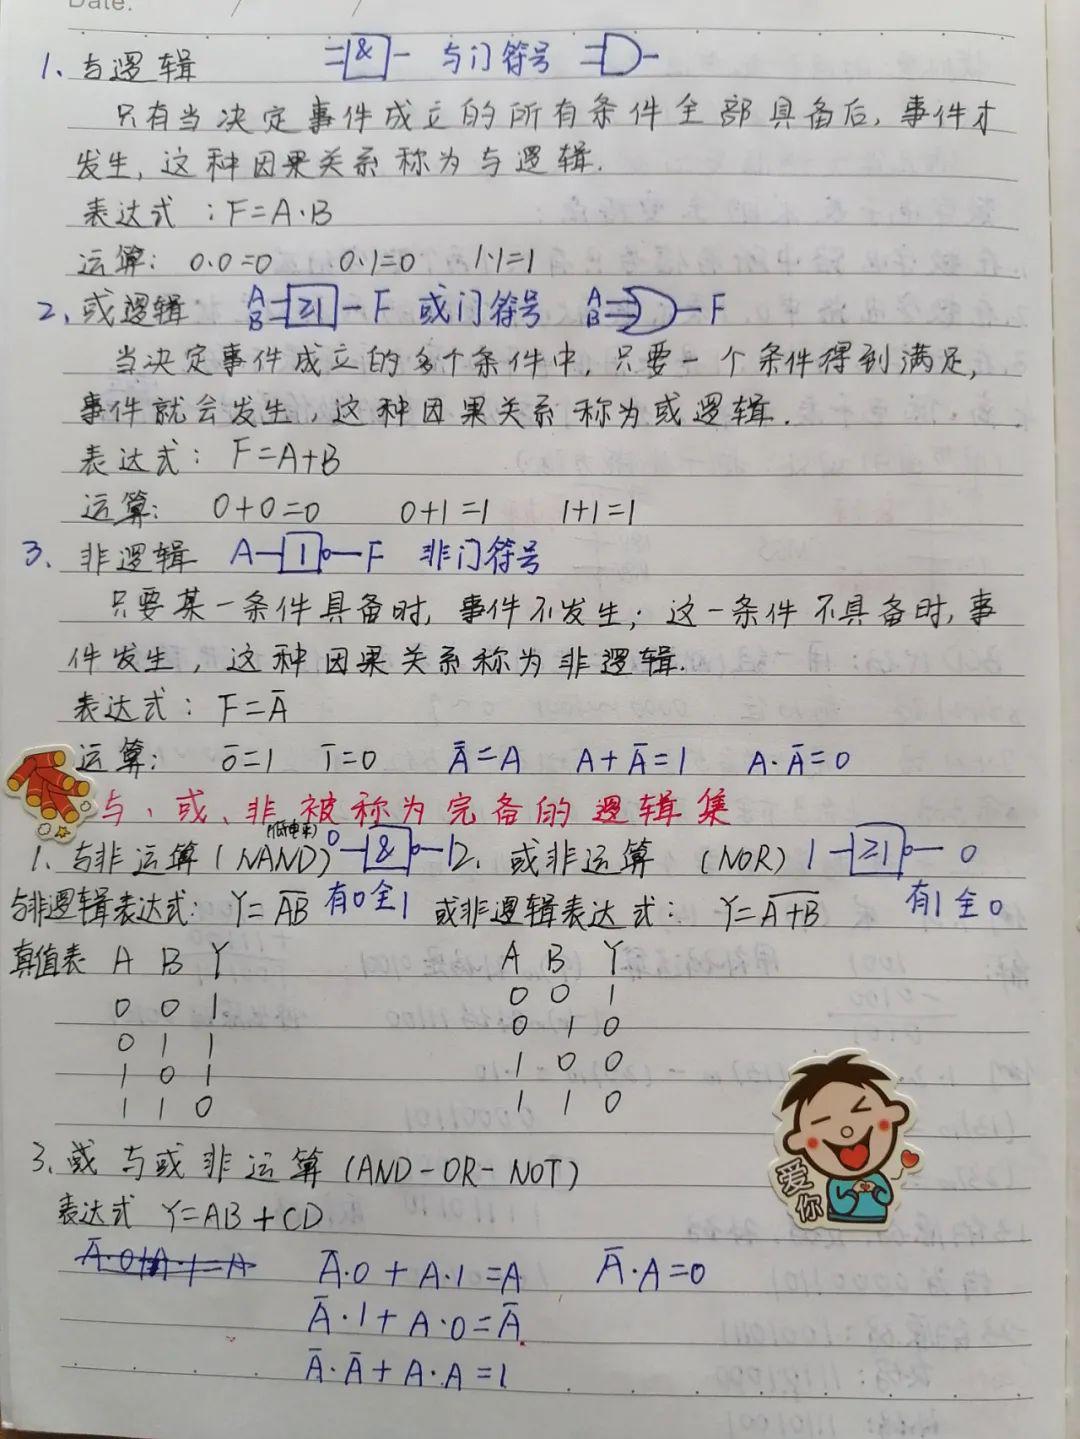 Date.
1、与逻辑 & 与门符号
只有当决定事件成立的所有条件全部具备后,事件才
发生,这种因果关系称为与逻辑.
表达式:F=A·B
运算: 0·0=0 0·1=0 1·1=1
2、或逻辑 A B ≥1 F 或门符号 A B F
当决定事件成立的多个条件中,只要一个条件得到满足,
事件就会发生,这种因果关系称为或逻辑.
表达式: F=A+B
运算: 0+0=0 0+1=1 1+1=1
3、非逻辑 A 1 F 非门符号
只要某一条件具备时,事件不发生;这一条件不具备时,事
件发生,这种因果关系称为非逻辑.
表达式: F=A̅
运算: 0̅=1 1̅=0 A̿=A A+A̅=1 A·A̅=0
与、或、非被称为完备的逻辑集
1、与非运算(NAND) 0 & 1 2、或非运算 (NOR) 1 ≥1 0
与非逻辑表达式: Y=A̅B̅ 有0全1 或非逻辑表达式: Y=A̅+̅B̅ 有1全0
真值表 A B Y A B Y
0 0 1 0 0 1
0 1 1 0 1 0
1 0 1 1 0 0
1 1 0 1 1 0
3、或 与或非运算(AND-OR-NOT)
表达式 Y=AB+CD
A̅·0+A·1=A A̅·A=0
A̅·1+A·0=A̅
A̅·A̅+A·A=1
爱你